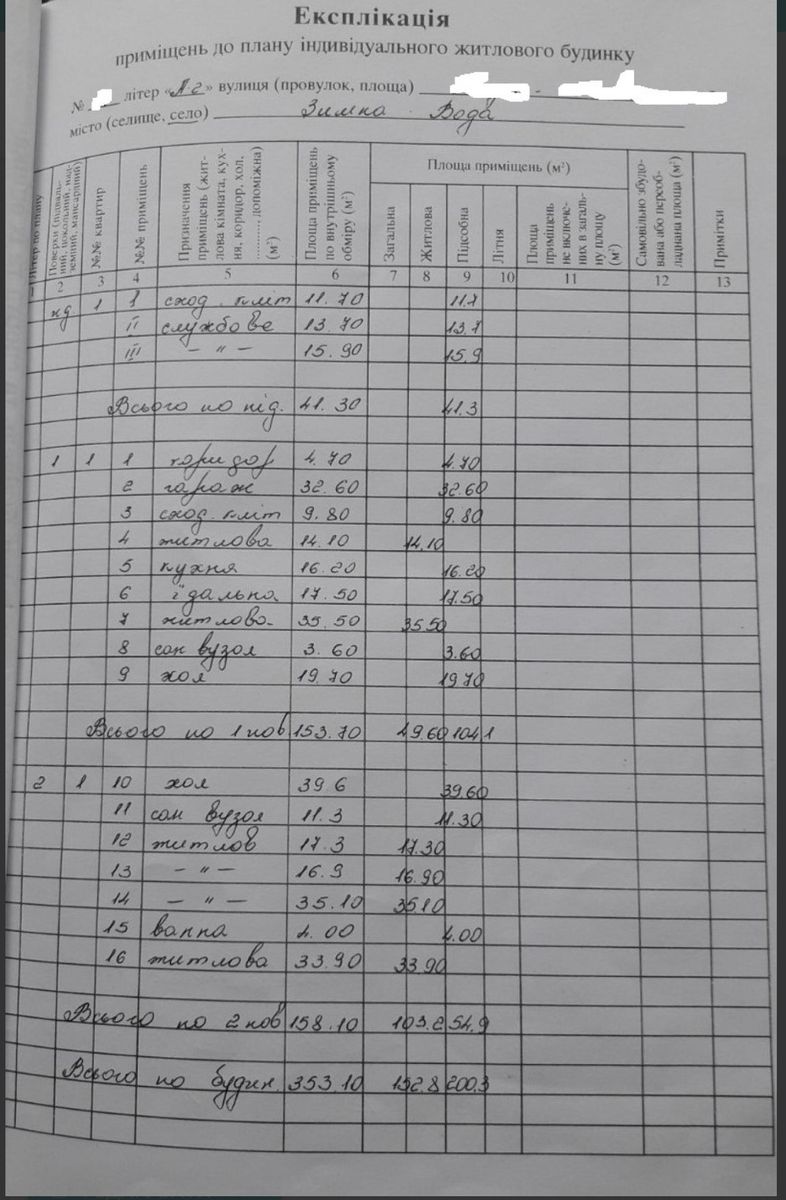 Експлікація
приміщень до плану індивідуального житлового будинку
№ літер « » вулиця (провулок, площа)
місто (селище, село) Зимна Вода
Літер по плану
Поверхи (підвальний, цокольний, надземний, мансардний)
№№ квартир
№№ приміщень
Призначення приміщень (житлова кімната, кухня, коридор, хол, ............ допоміжна) (м²)
Площа приміщень по внутрішньому обміру (м²)
Площа приміщень (м²)
Загальна
Житлова
Підсобна
Літня
Площа приміщень не включених в загальну площу (м²)
Самовільно збудована або переобладнана площа (м²)
Примітки
2 3 4 5 6 7 8 9 10 11 12 13
нд 1 I сход. кліт 11.70 11.7
II службове 13.70 13.7
III — " — 15.90 15.9
Всього по під. 41.30 41.3
1 1 1 коридор 4.70 4.70
2 гараж 32.60 32.60
3 сход. кліт 9.80 9.80
4 житлова 14.10 14.10
5 кухня 16.20 16.20
6 їдальна 17.50 17.50
7 житлова 35.50 35.50
8 сан вузол 3.60 3.60
9 хол 19.70 19.70
Всього по 1 пов 153.70 49.60 104.1
2 1 10 хол 39.6 39.60
11 сан вузол 11.3 11.30
12 житлов 17.3 17.30
13 — " — 16.9 16.90
14 — " — 35.10 35.10
15 ванна 4.00 4.00
16 житлова 33.90 33.90
Всього по 2 пов 158.10 103.2 54.9
Всього по будин. 353.10 152.8 200.3